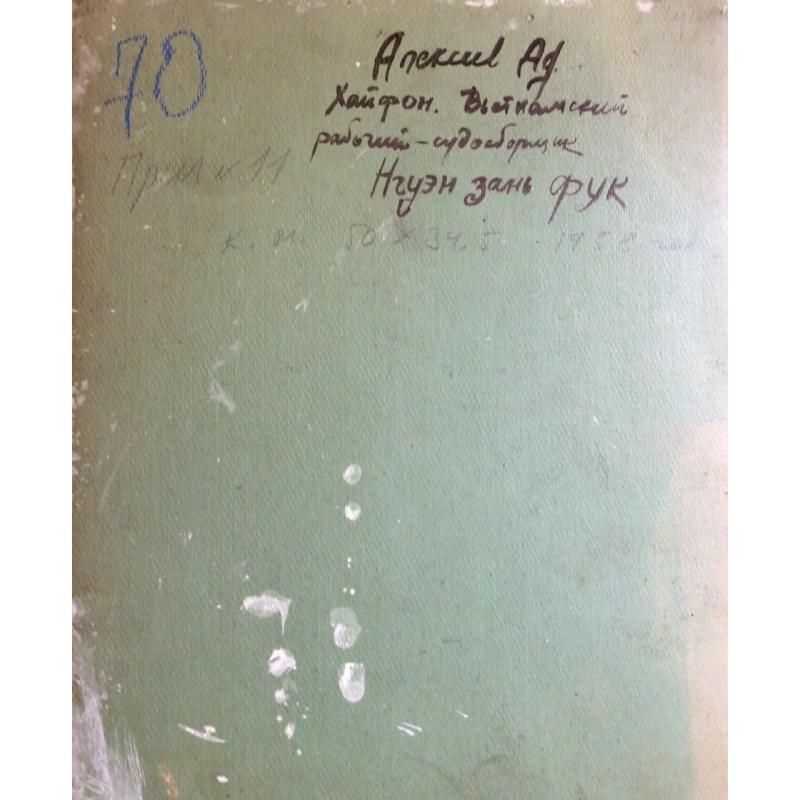 70
Алексиев Ад.
Хайфон. Вьетнамский
рабочий-судосборщик
Нгуэн зань Фук
к. м. 50 х 34,5 1958 год